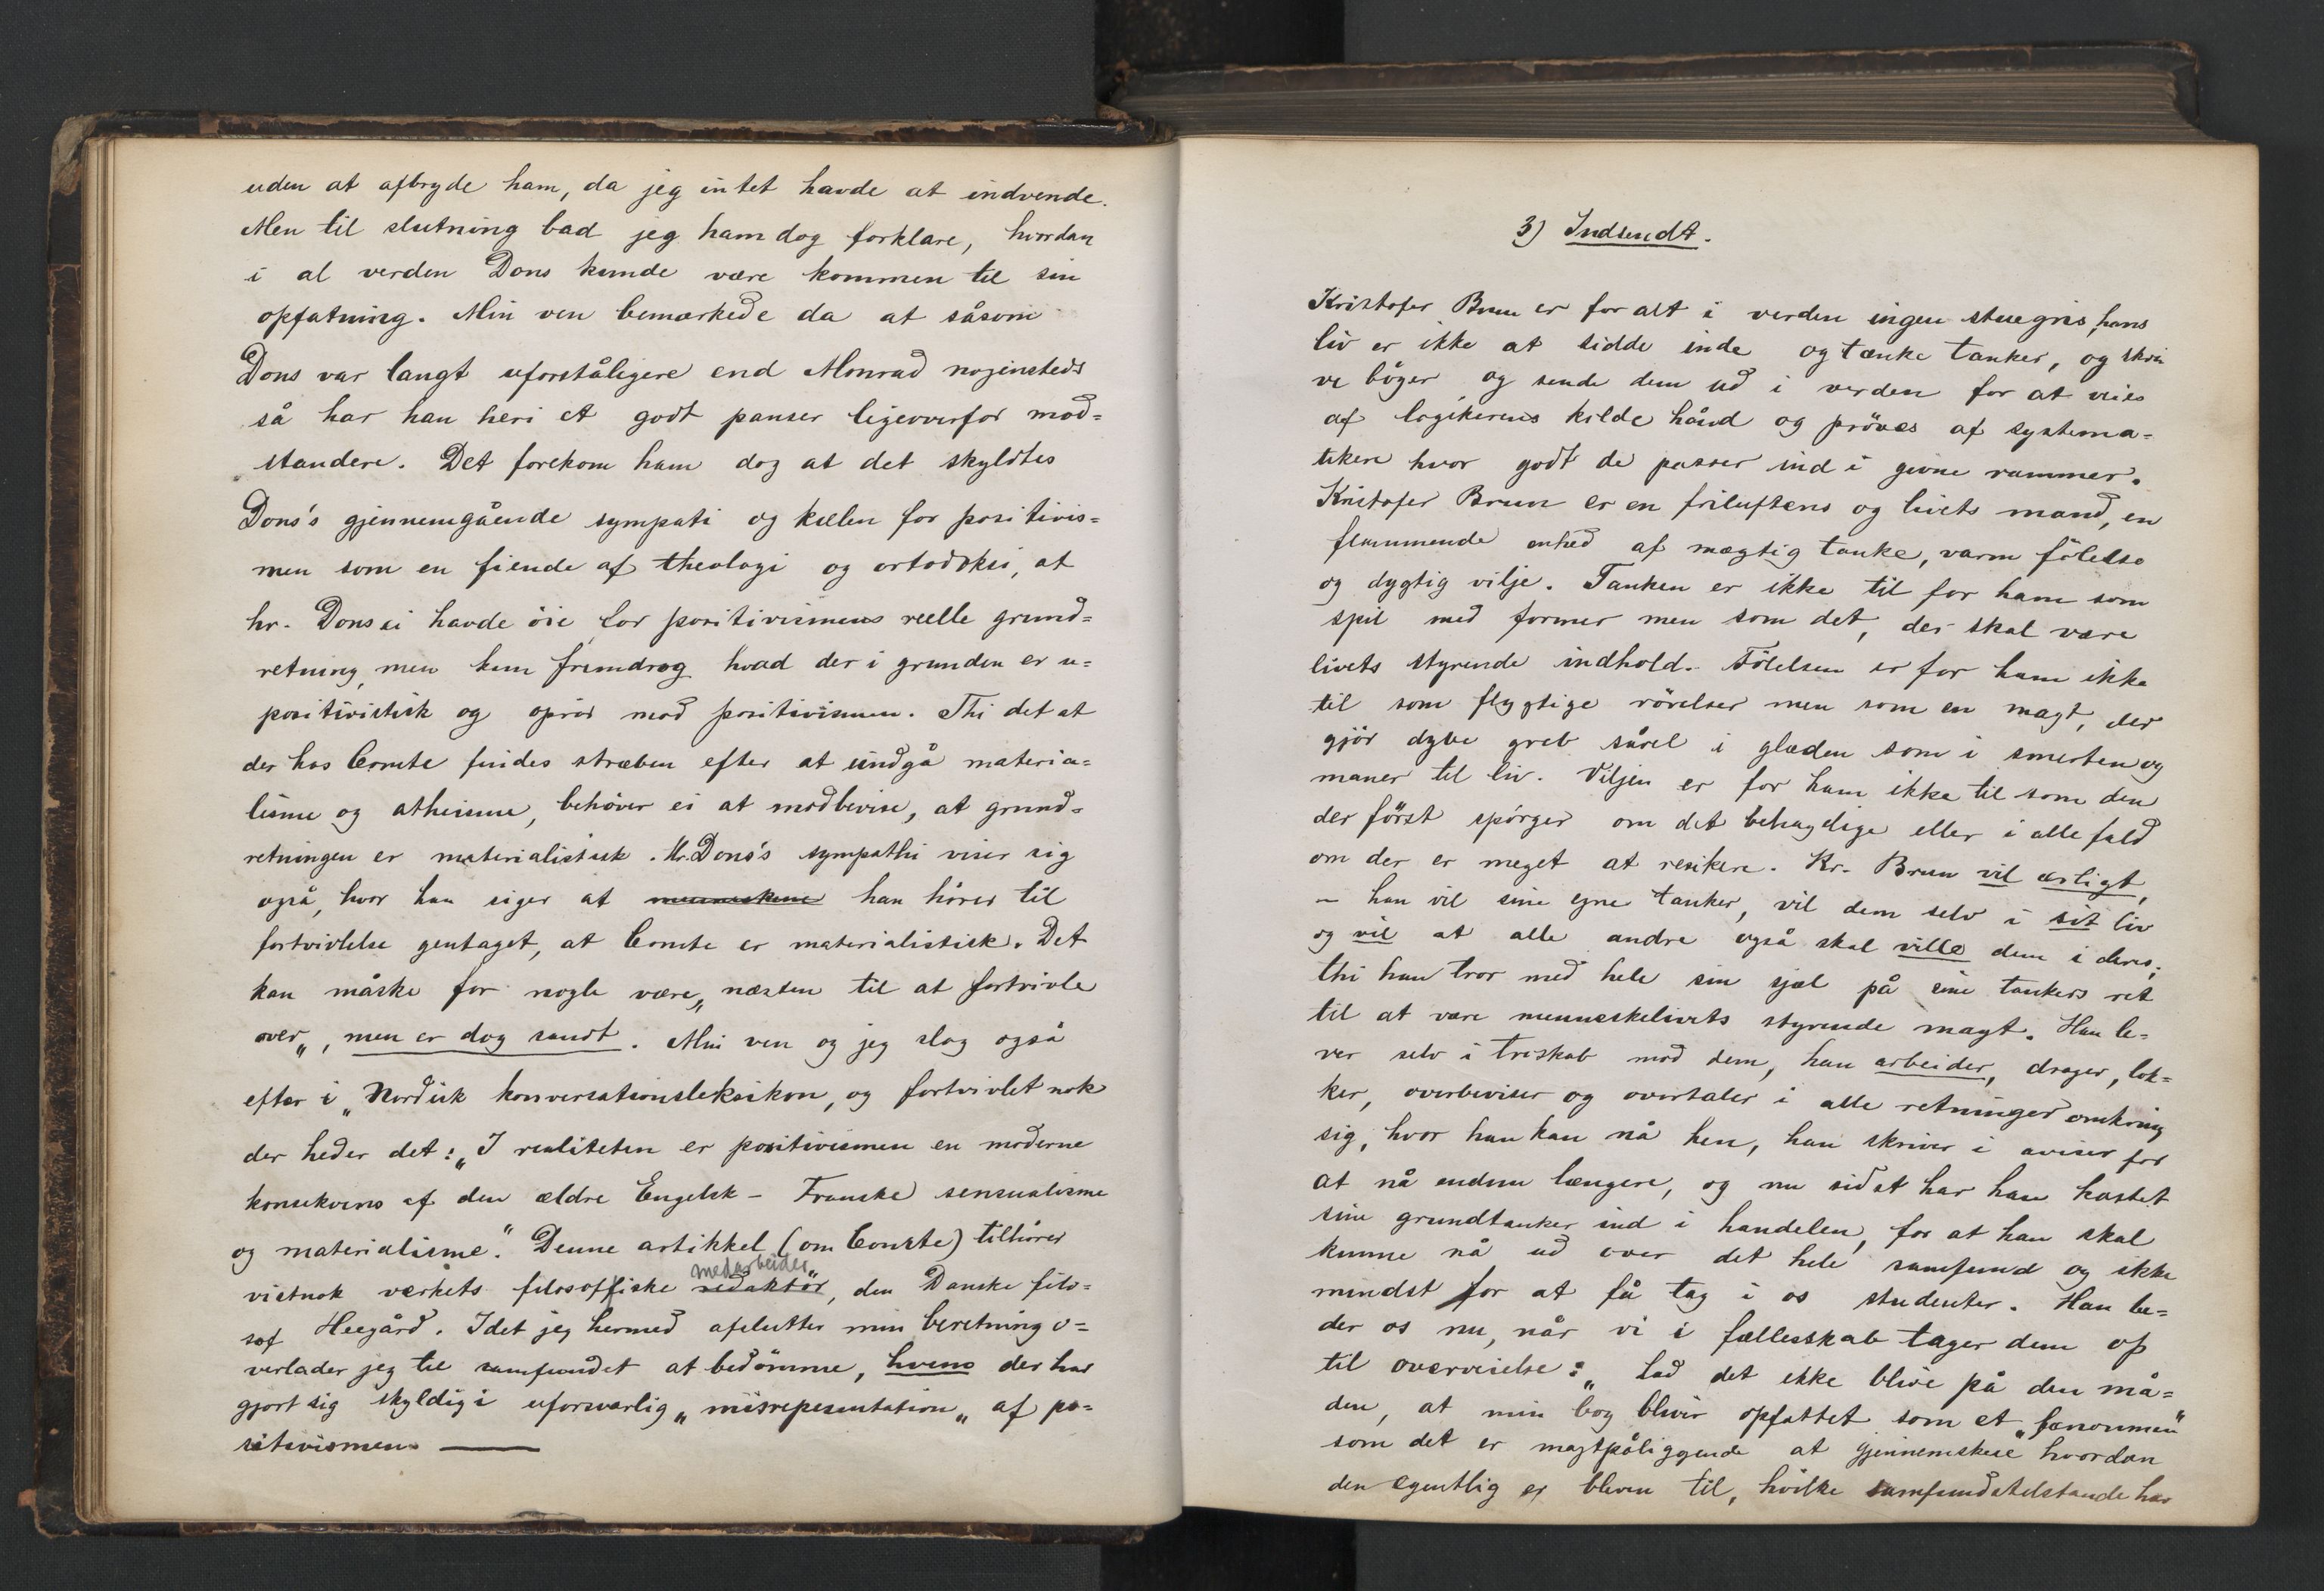 uden at afbryde ham, da jeg intet havde at indvende.
Men til slutning bad jeg ham dog forklare, hvordan
i al verden Dons kunde være kommen til sin
opfatning. Min ven bemærkede da at såsom
Dons var langt uforståligere end Monrad nogensteds
så har han heri et godt panser ligeoverfor mod=
standere. Det forekom ham dog at det skyldtes
Dons's gjennemgående sympati og kælen for positivis=
men som en fiende af theologi og ortodoksi, at
hr. Dons ei havde öie for positivismens reelle grund=
retning, men kun fremdrog hvad der i grunden er u=
positivistisk og oprör mod positivismen. Thi det at
der hos Comte findes stræben efter at undgå materia=
lisme og atheisme, behöver ei at modbevise, at grund=
retningen er materialistisk. Hr. Dons's sympathi viser sig
også, hvor han siger at menneskene han hörer til
fortvivlelse gentaget, at Comte er materialistisk. Det
kan måske for nogle være „næsten til at fortvivle
over„, men er dog sandt. Min ven og jeg slog også
efter i „Nordisk konversationsleksikon, og fortvivlet nok
der heder det: „I realiteten er positivismen en moderne
konsekvens af den ældre Engelsk - Franske sensualisme
og materialisme". Denne artikkel (om Comte) tilhörer
medarbeider
vistnok værkets filosoffiske redaktör, den Danske filo=
sof Heegård. Idet jeg hermed afslutter min beretning o=
verlader jeg til samfundet at bedömme, hvem der har
gjort sig skyldig i uforsvarlig „misrepesentation„ af po=
sitivismen. ———
3) Indsendt.
Kristofer Brun er for alt i verden ingen stuegris, hans
liv er ikke at sidde inde og tænke tanker, og skri
ve böger og sende dem ud i verden for at veies
af logikerens kilde hånd og pröves af systema=
tikere hvor godt de passer ind i givne rammer.
Kristofer Brun er en friluftens og livets mand, en
flammende enhed af mægtig tanke, varm fölelse
og dygtig vilje. Tanken er ikke til for ham som
spil med former men som det, der skal være
livets styrende indhold. Fölelsen er for ham ikke
til som flygtige rörelser men som en magt, der
gjör dybe greb såvel i glæden som i smerten og
maner til liv. Viljen er for ham ikke til som den
der först spörger om det behagelige eller i alle fald
om der er meget at resikere. Kr. Brun vil ærligt,
- han vil sine egne tanker, vil dem selv i sit liv
og vil at alle andre også skal ville dem i deres;
thi han tror med hele sin sjæl på sine tankers ret
til at være menneskelivets styrende magt. Han le=
ver selv i troskab mod dem, han arbeider, drager, lok=
ker, overbeviser og overtaler i alle retninger omkring
sig, hvor han kan nå hen, han skriver i aviser for
at nå endnu længere, og nu sidst har han kastet
sine grundtanker ind i handelen, for at han skal
kunne nå ud over det hele samfund og ikke
mindst for at få tag i os studenter. Han be=
der os nu, når vi i fællesskab tager dem op
til overveielse: „Lad det ikke blive på den må=
den, at min bog blivir opfattet som et „fænomen"
som det er magtpåliggende at gjennemskue hvordan
den egentlig er bleven til, hvilke samfundstilstande har